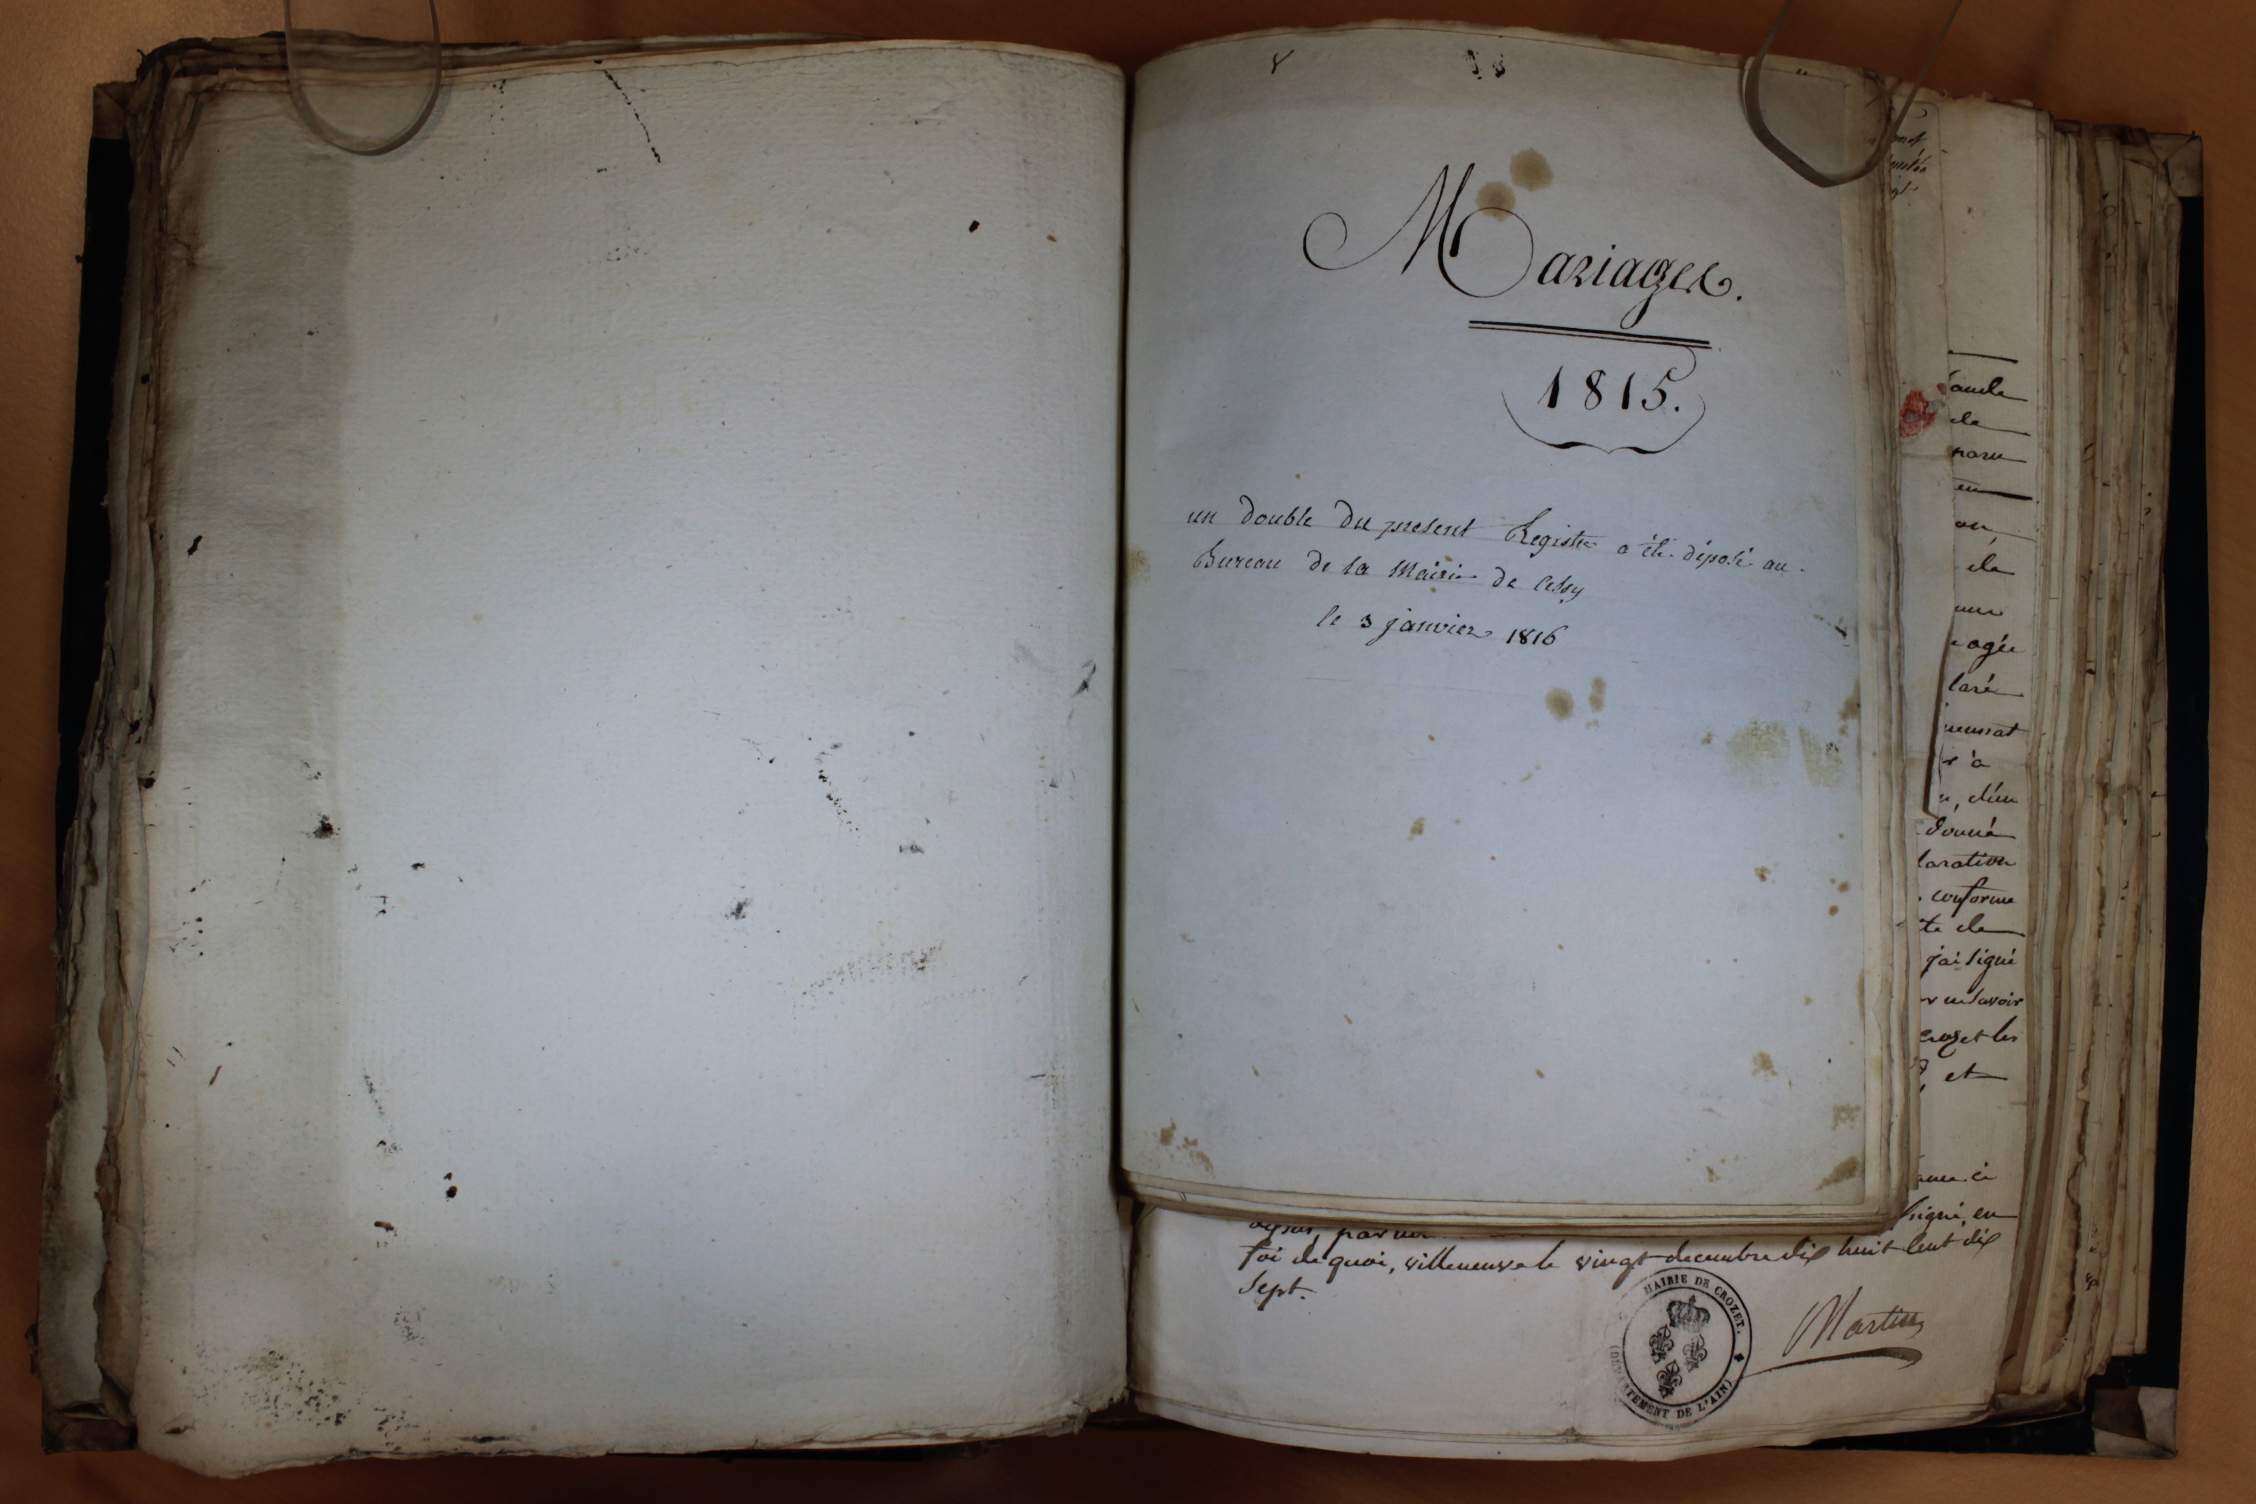 Mariages.
1815.
un double du present Registre a été déposé au
Bureau de la Mairie de Cessy
le 3 janvier 1816
ele
agée
laré
r a
donné
laration
conforme
te de
j'ai signé
savoir
Crozet les
et
signé, en
foi de quoi, villeneuve le vingt decembre dix huit Cent dix
Sept.
MAIRIE DE CROZET.
(DÉPARTEMENT DE L'AIN)
Martin